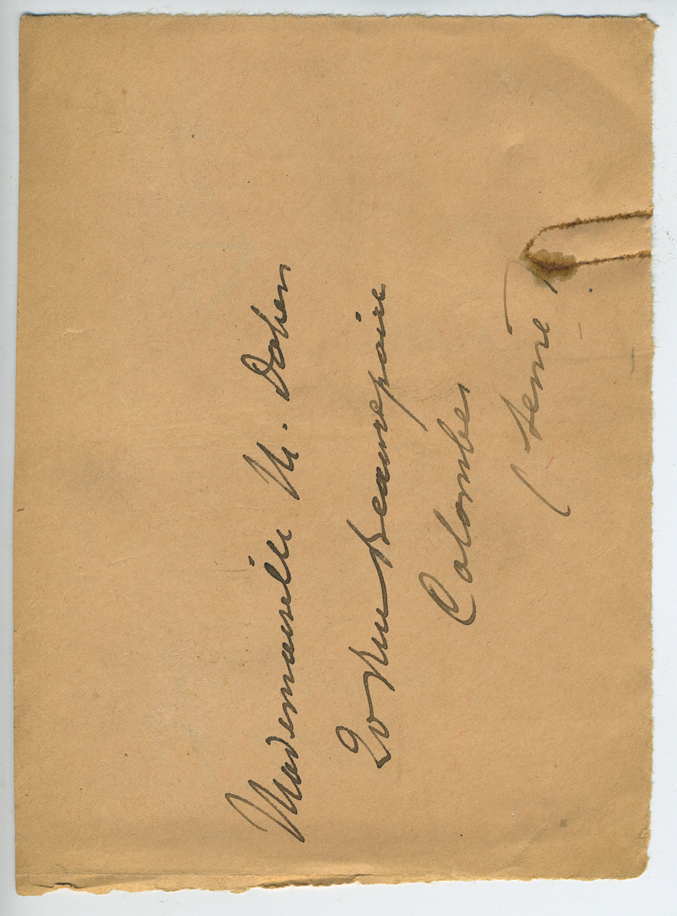 Mademoiselle M. Dohen
20 Rue Beaurepaire
Colombes
(Seine)